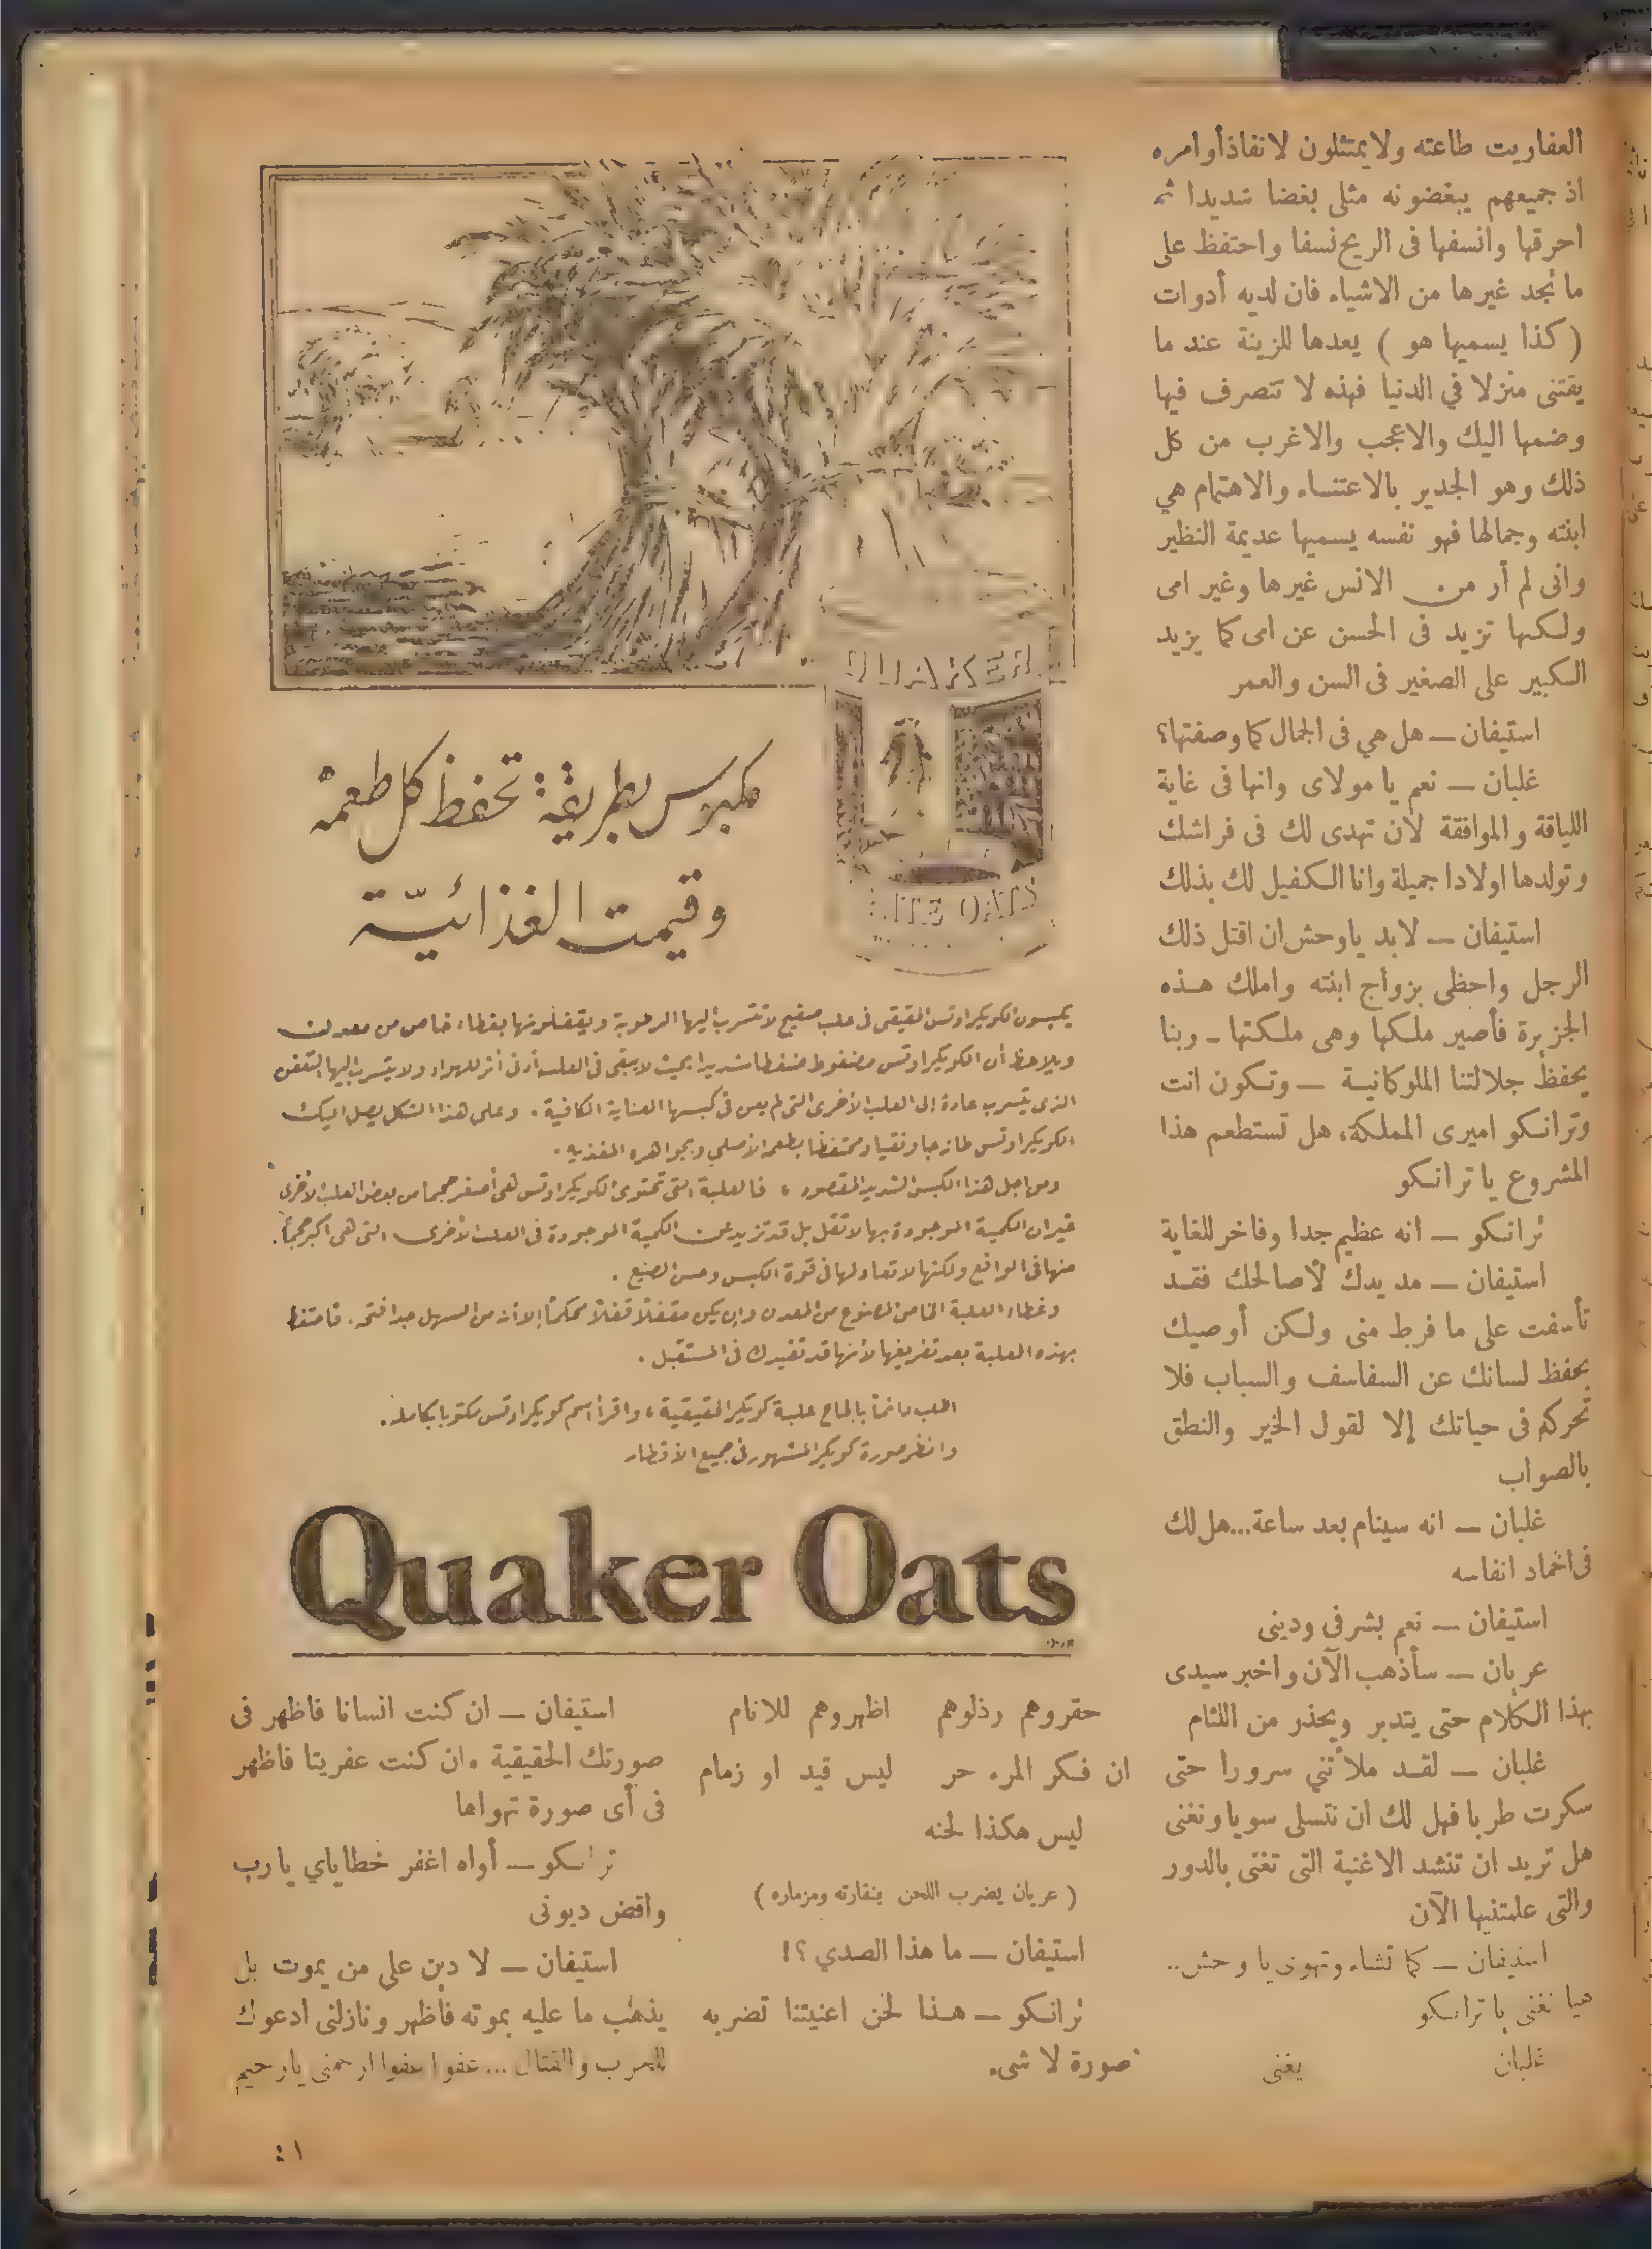 العفاريت طاعته ولا يمتثلون لانفاذ أوامره
اذ جميعهم يبغضونه مثلى بغضا شديدا ثم
احرقها وانسفها فى الريح نسفا واحتفظ على
ما تجد غيرها من الاشياء فان لديه أدوات
( كذا يسميها هو ) يعدها للزينة عند ما
يقتنى منزلا في الدنيا فهذه لا تتصرف فيها
وضمها اليك والاعجب والاغرب من كل
ذلك وهو الجدير بالاعتناء والاهتمام هي
ابنته وجمالها فهو نفسه يسميها عديمة النظير
وانى لم أر من الانس غيرها وغير امى
ولكنها تزيد فى الحسن عن امى كما يزيد
الكبير على الصغير فى السن والعمر
استيفان — هل هي فى الجمال كما وصفتها؟
غلبان — نعم يا مولاى وانها فى غاية
اللياقة والموافقة لان تهدى لك فى فراشك
وتولدها اولادا جميلة وانا الكفيل لك بذلك
استيفان — لا بد ياوحش ان اقتل ذلك
الرجل واحظى بزواج ابنته واملك هذه
الجزيرة فأصير ملكها وهى ملكتها ـ وربنا
يحفظ جلالتنا الملوكانية — وتكون انت
وترانكو اميرى المملكة، هل تستطعم هذا
المشروع يا ترانكو
ترانكو — انه عظيم جدا وفاخر للغاية
استيفان — مد يدك لأصالحك فقد
تأسفت على ما فرط منى ولكن أوصيك
بحفظ لسانك عن السفاسف والسباب فلا
تحركه فى حياتك إلا لقول الخير والنطق
بالصواب
غلبان — انه سينام بعد ساعة...هل لك
فى اخماد انفاسه
استيفان — نعم بشرفى ودينى
عريان — سأذهب الآن واخبر سيدى
بهذا الكلام حتى يتدبر ويحذر من اللئام
غلبان — لقد ملأتني سرورا حتى
سكرت طربا فهل لك ان نتسلى سويا ونغنى
هل تريد ان تنشد الاغنية التى تغنى بالدور
والتى علمتنيها الآن
استيفان — كما تشاء وتهوى يا وحش..
هيا نغنى يا ترانكو
غلبان يغنى
QUAKER
WHITE OATS
مكبوس بطريقة تحفظ كل طعمه
وقيمته الغذائية
يكبسون الكويكر اوتس الحقيقى فى علب صفيح لا تتسرب اليها الرطوبة ويقفلونها بغطاء خاص من معدن
ويلاحظ أن الكويكر اوتس مضغوط ضغطا شديدا بحيث لا يبقى فى العلب أدنى أثر للهواء ولا يتسرب إليها التعفن
الذى يتسرب عادة إلى العلب الأخرى التى لم يعن فى كبسها العناية الكافية . وعلى هذا الشكل يصل اليك
الكويكر اوتس طازجا ونقيا ومحتفظا بطعمه الأصلي وبجواهره المغذيه .
ومن اجل هذا الكبس الشديد المقصود ، فالعلبة التى تحتوى الكويكر اوتس لهى أصغر حجما من بعض العلب الأخرى
غير ان الكمية الموجودة بها لا تقل بل قد تزيد عن الكمية الموجودة فى العلب الأخرى التى هى اكبر حجماً.
منها فى الواقع ولكنها لا تعادلها فى قوة الكبس وحسن الصنيع .
وغطاء العلبة الخاص المصنوع من المعدن وإن يكن مقفلاً قفلاً محكماً إلا أن من السهل جدا فتحه. فاحتفظ
بهذه العلبة بعد تفريغها لأنها قد تفيدك فى المستقبل .
اطلب دائماً بالحاح علبة كويكر الحقيقية ، واقرأ اسم كويكر اوتس مكتوبا بكامله.
وانظر صورة كويكر المشهور فى جميع الأقطار
Quaker Oats
حقروهم رذلوهم اظهروهم للانام
ان فكر المرء حر ليس قيد او زمام
ليس هكذا لحنه
( عريان يضرب اللحن بنقارته ومزماره )
استيفان — ما هذا الصدي ؟!
ترانكو — هذا لحن اغنيتنا تضربه
صورة لا شىء
استيفان — ان كنت انسانا فاظهر فى
صورتك الحقيقية وان كنت عفريتا فاظهر
فى أى صورة تهواها
ترانكو — أواه اغفر خطاياي يا رب
واقض ديونى
استيفان — لا دين على من يموت بل
يذهب ما عليه بموته فاظهر ونازلنى ادعوك
للحرب والقتال ... عفوا عفوا ارحمنى يا رحيم
٤١